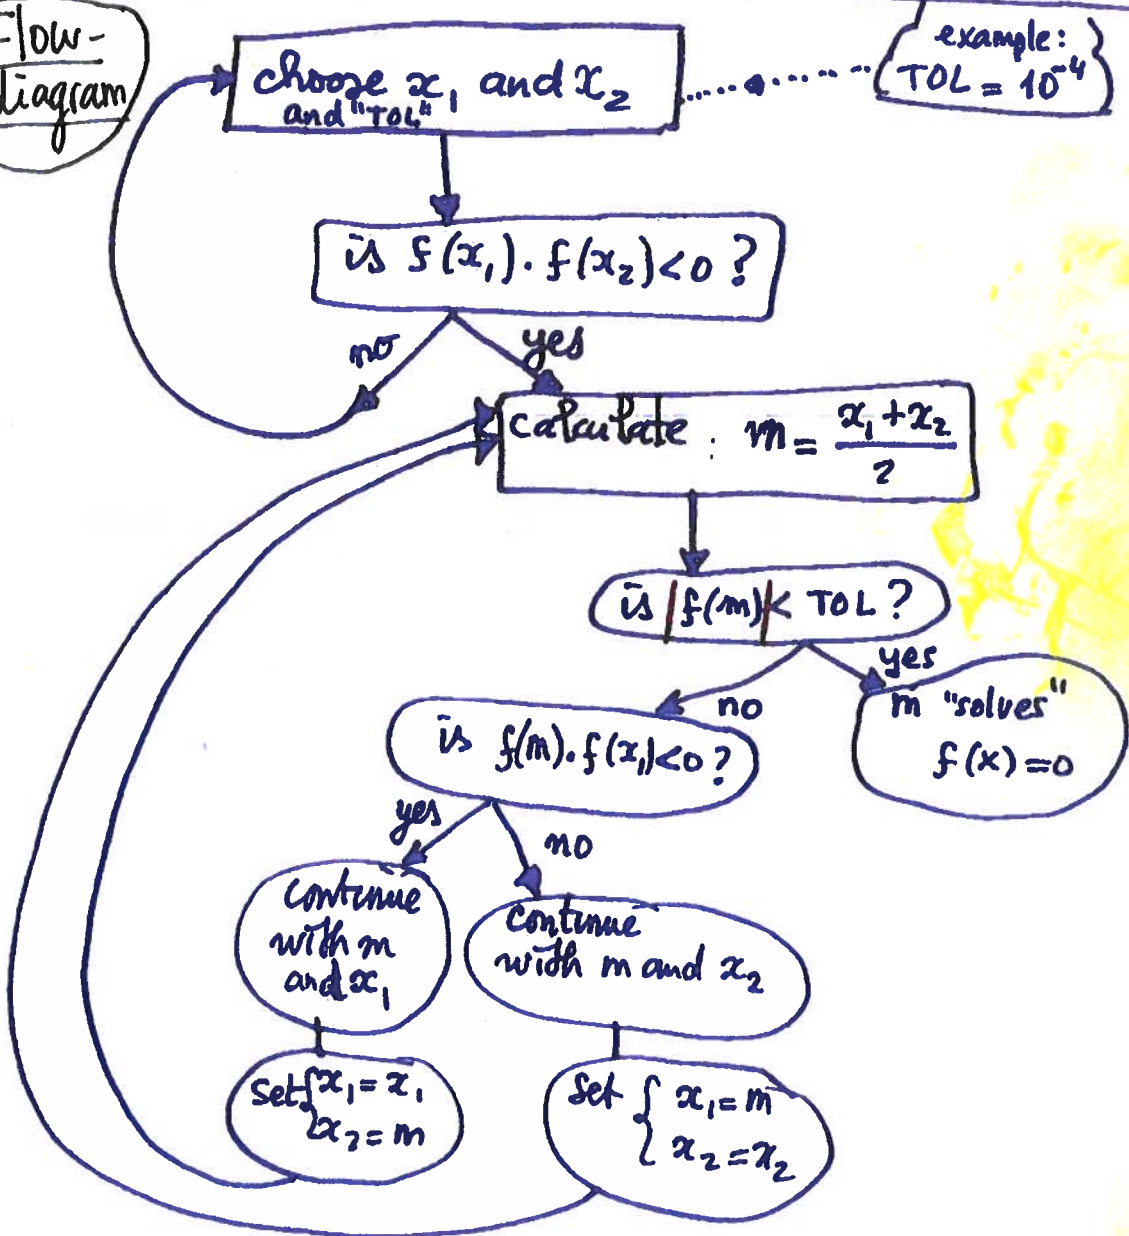 Flow-
diagram
choose x₁ and x₂
and "TOL"
example:
TOL = 10⁻⁴
is f(x₁). f(x₂)<0 ?
no
yes
calculate : m = (x₁+x₂)/2
is |f(m)|< TOL ?
yes
no
m "solves"
f(x)=0
is f(m).f(x₁)<0 ?
yes
no
continue
with m
and x₁
continue
with m and x₂
Set { x₁ = x₁
x₂ = m
Set { x₁ = m
x₂ = x₂